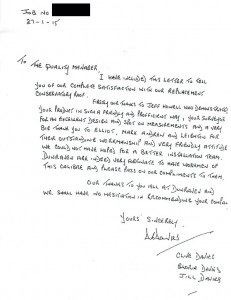 JOB NO
27-1-15
TO THE QUALITY MANAGER
I HAVE INCLUDED THIS LETTER TO TELL
YOU OF OUR COMPLETE SATISFACTION WITH OUR REPLACEMENT
CONSERVATORY ROOF.
FIRSTLY OUR THANKS TO JEFF HOWELL WHO DEMONSTRATED
YOUR PRODUCT IN SUCH A FRIENDLY AND PROFICIENT WAY, YOUR SURVEYOR
FOR AN EXCELLENT DESIGN AND SPOT ON MEASUREMENTS AND A VERY
BIG THANK YOU TO ELLIOT, MARK ANDREW AND LEIGHTON FOR
THEIR OUTSTANDING WORKMANSHIP AND VERY FRIENDLY SERVICE
WE COULD NOT HAVE HOPED FOR A BETTER INSTALLATION TEAM.
DUNRAVEN ARE INDEED VERY FORTUNATE TO HAVE WORKMEN OF
THIS CALIBRE AND PLEASE PASS ON OUR COMPLIMENTS TO THEM.
OUR THANKS TO YOU ALL AT DUNRAVEN AND
WE SHALL HAVE NO HESITATION IN RECOMMENDING YOUR
YOURS SINCERELY
CLIVE DAVIES
DAVIES
JILL DAVIES